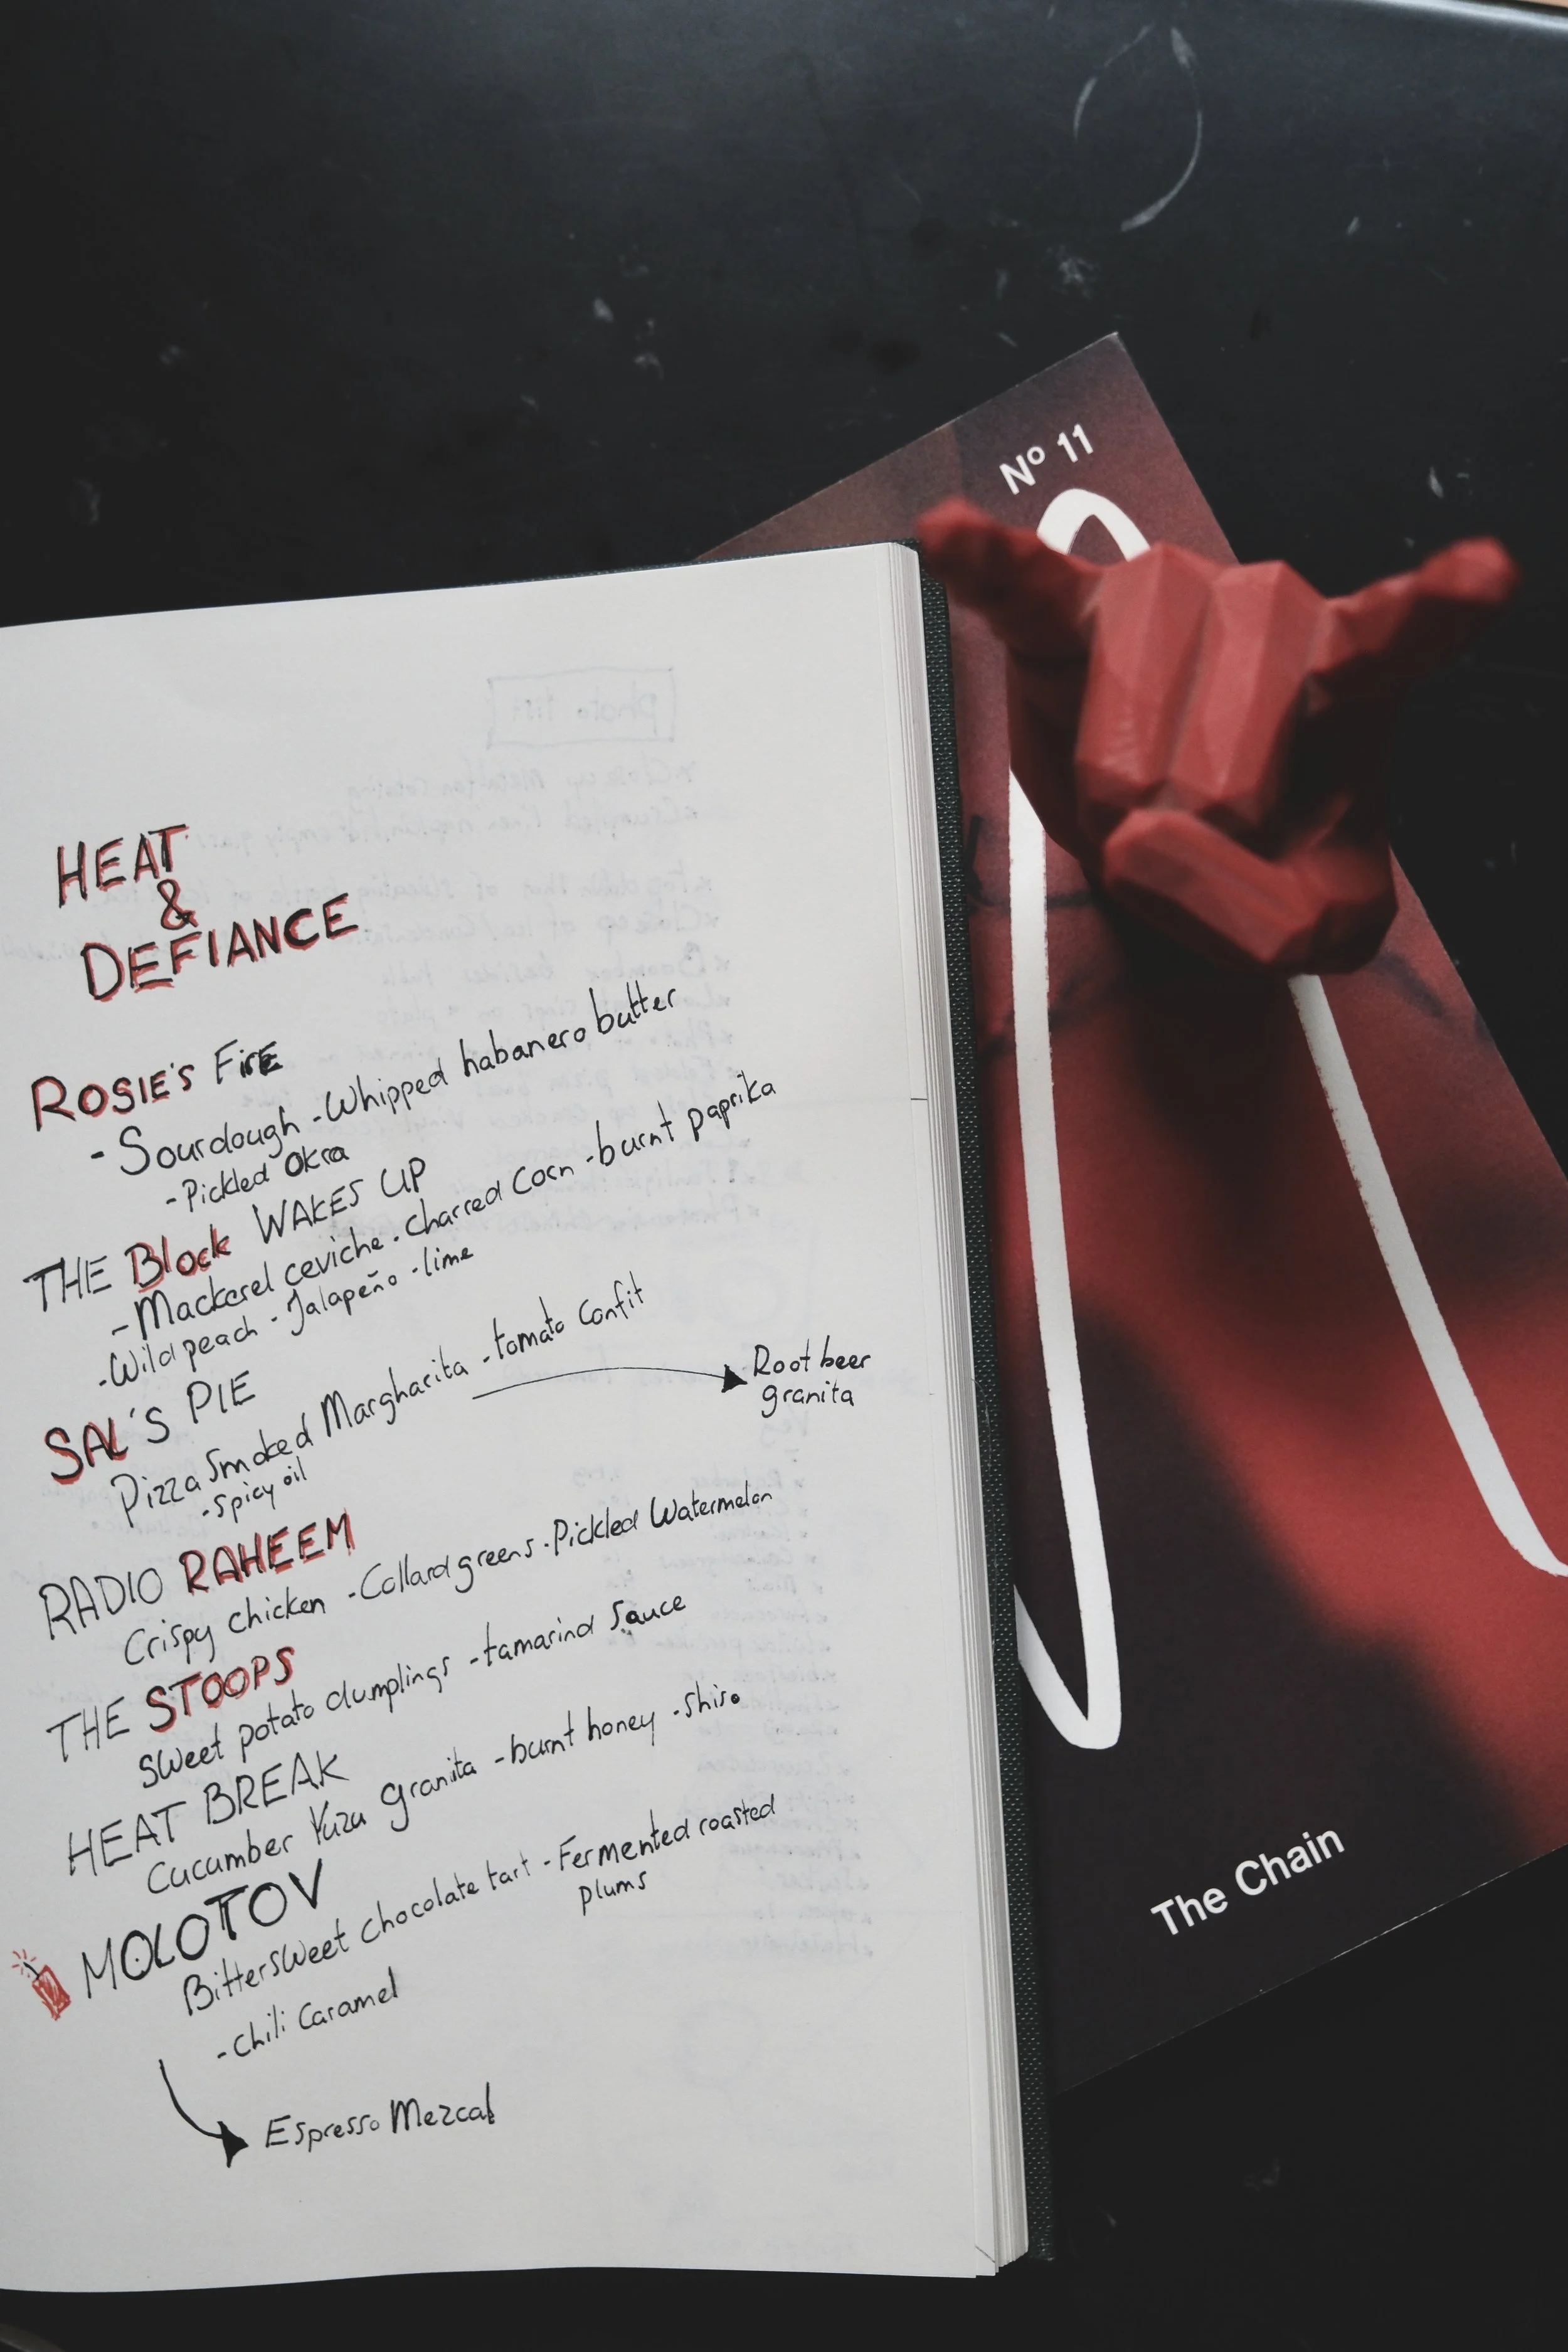 HEAT
&
DEFIANCE
ROSIE'S FIRE
- Sourdough - Whipped habanero butter
- Pickled Okra
THE Block WAKES UP
- Mackerel ceviche - charred corn - burnt paprika
- Wild peach - Jalapeño - lime
SAL'S PIE
Pizza Smoked Margharita - tomato confit
- spicy oil
Root beer
granita
RADIO RAHEEM
Crispy chicken - Collard greens - Pickled Watermelon
THE STOOPS
Sweet potato dumplings - tamarind sauce
HEAT BREAK
Cucumber Yuzu granita - burnt honey - shiso
MOLOTOV
Bittersweet chocolate tart - Fermented roasted
plums
- Chili Caramel
Espresso Mezcal
Nº 11
The Chain